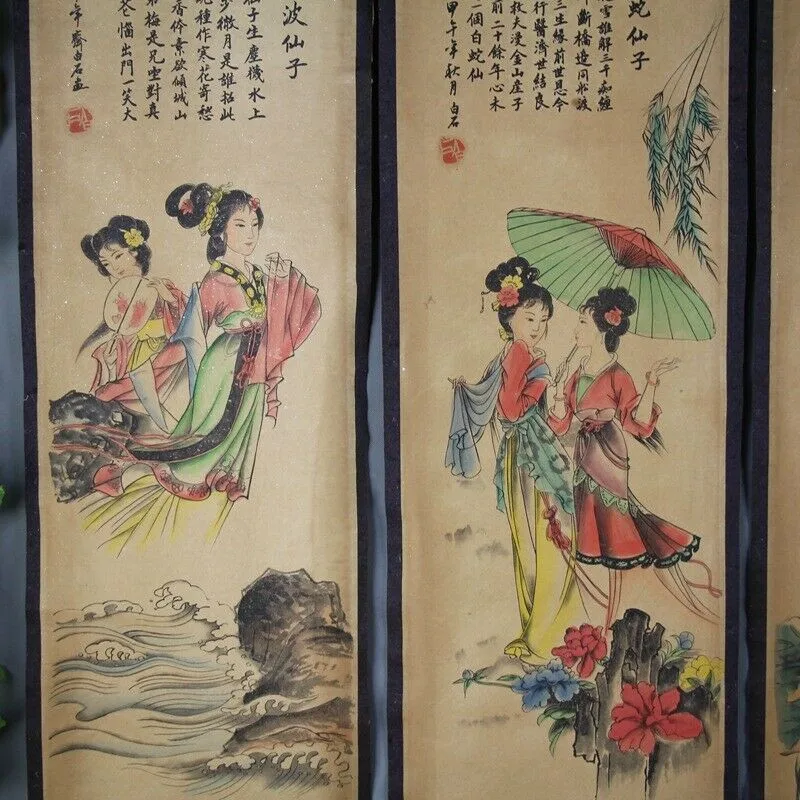 波仙子
仙子生塵襪水上
步微月是誰招此
種作寒花寄愁
香体素欲傾城山
梅是兄坐對真
花惱出門一笑大
年齊白石画
蛇仙子
雪誰解三千痴纏
斷橋造同舟渡
三生緣前世恩今
行醫濟世結良
救夫漫金山崖子
前二十餘年心未
一個白蛇仙
甲午年秋月白石